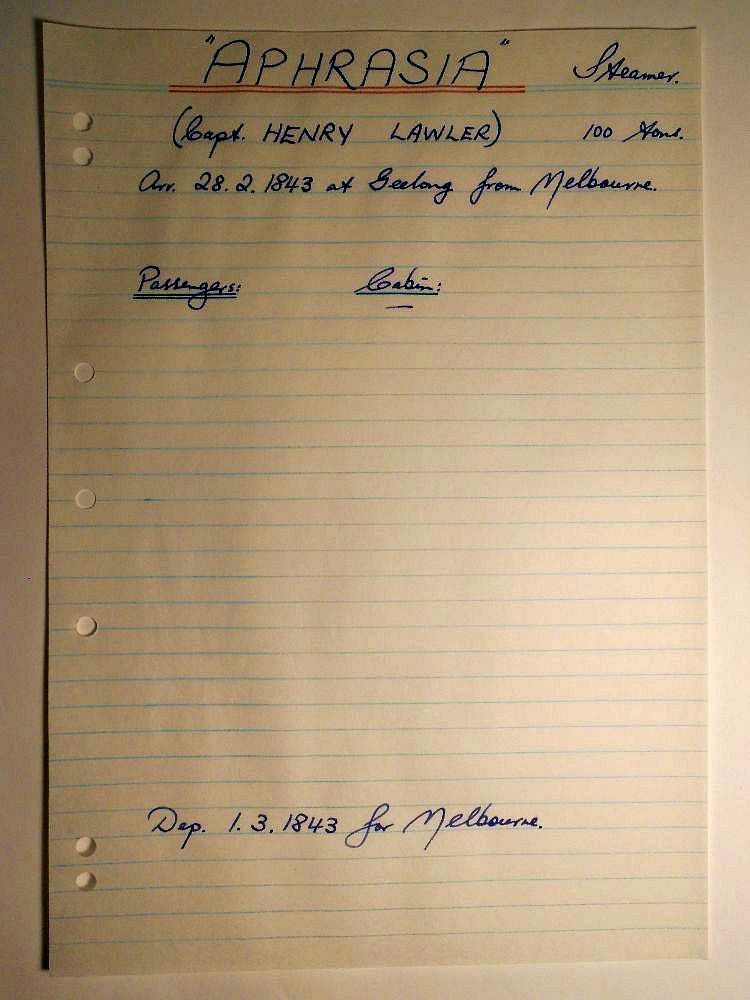 "APHRASIA" Steamer.
(Capt. HENRY LAWLER) 100 Tons.
Arr. 28.2.1843 at Geelong from Melbourne.
Passengers: Cabin:
—
Dep. 1.3.1843 for Melbourne.